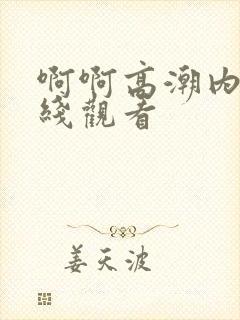 啊啊高潮内
綫觀看
姜天波